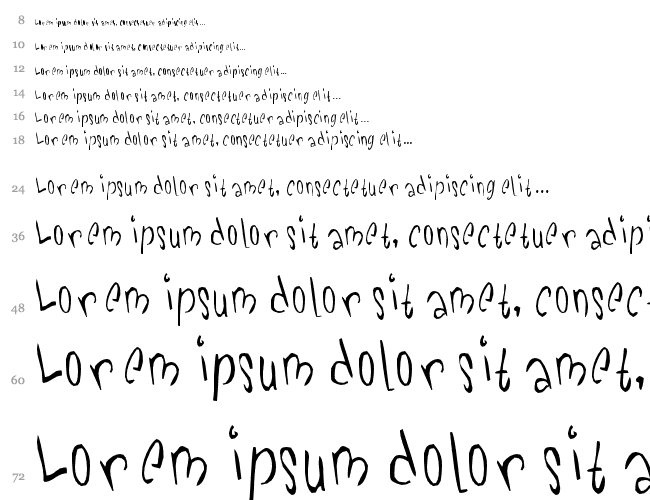 8 Lorem ipsum dolor sit amet, consectetuer adipiscing elit...
10 Lorem ipsum dolor sit amet, consectetuer adipiscing elit...
12 Lorem ipsum dolor sit amet, consectetuer adipiscing elit...
14 Lorem ipsum dolor sit amet, consectetuer adipiscing elit...
16 Lorem ipsum dolor sit amet, consectetuer adipiscing elit...
18 Lorem ipsum dolor sit amet, consectetuer adipiscing elit...
24 Lorem ipsum dolor sit amet, consectetuer adipiscing elit...
36 Lorem ipsum dolor sit amet, consectetuer adipi
48 Lorem ipsum dolor sit amet, consec
60 Lorem ipsum dolor sit amet,
72 Lorem ipsum dolor sit a